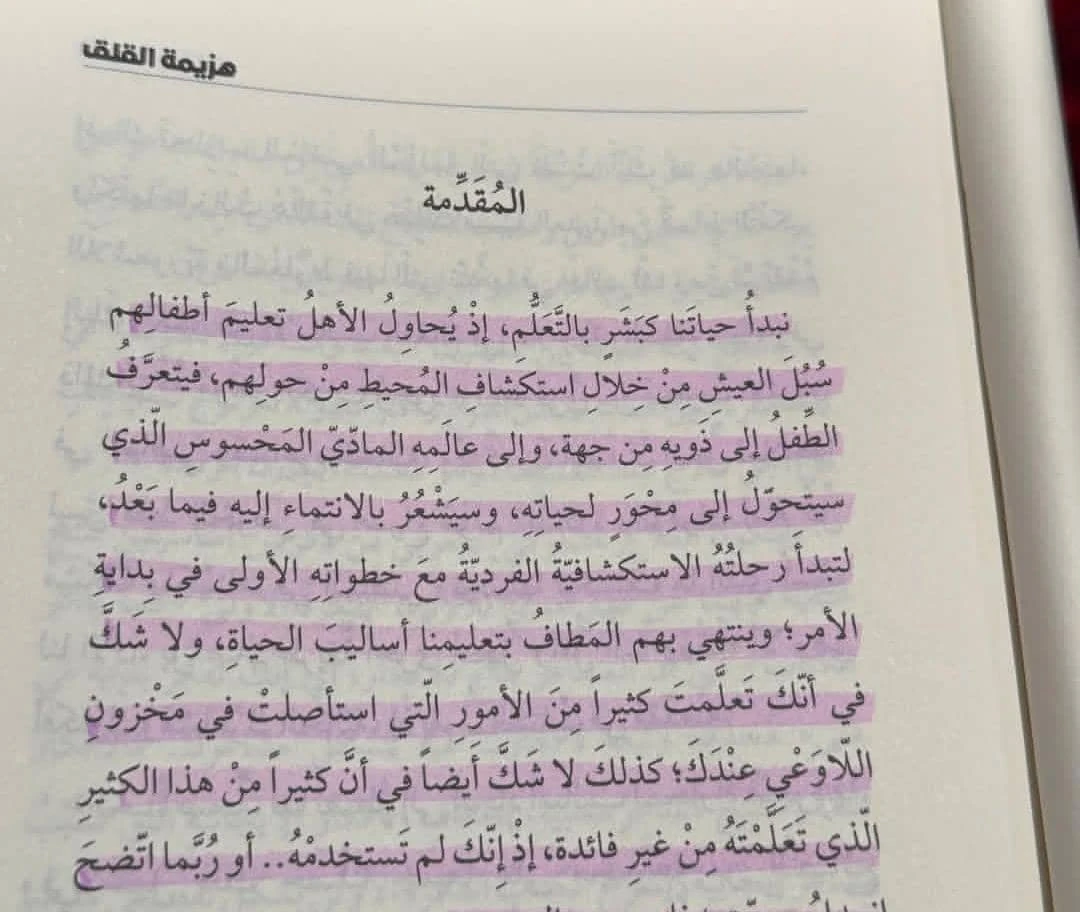 هزيمة القلق
المُقَدِّمة
نبدأُ حياتَنا كبَشَرٍ بالتَّعَلُّمِ، إذْ يُحاوِلُ الأهلُ تعليمَ أطفالِهِم
سُبُلَ العيشِ مِنْ خِلالِ استكشافِ المُحيطِ مِنْ حولِهم، فيتعرَّفُ
الطِّفلُ إلى ذَويهِ مِن جهة، وإلى عالَمِهِ المادّيّ المَحْسوسِ الّذي
سيتحوّلُ إلى مِحْوَرٍ لحياتِهِ، وسيَشْعُرُ بالانتماءِ إليه فيما بَعْدُ،
لتبدأَ رحلتُهُ الاستكشافيّةُ الفرديّةُ معَ خطواتِهِ الأولى في بِدايةِ
الأمر؛ وينتهي بهم المَطافُ بتعليمِنا أساليبَ الحياةِ، ولا شَكَّ
في أنّكَ تَعلَّمتَ كثيراً مِنَ الأمورِ الّتي استأصلتْ في مَخْزونِ
اللّاوَعْيِ عِنْدَكَ؛ كذلكَ لا شَكَّ أيضاً في أنَّ كثيراً مِنْ هذا الكثيرِ
الّذي تَعَلَّمْتَهُ مِنْ غيرِ فائدة، إذْ إنّكَ لم تَستخدمْهُ.. أو رُبَّما اتّضحَ